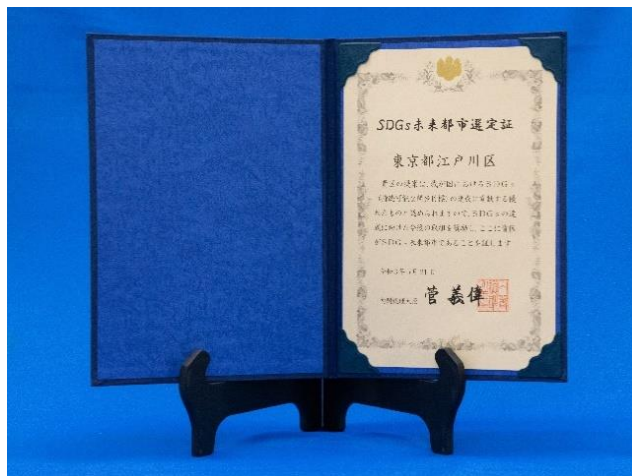 SDGs未来都市選定証
東京都江戸川区
貴区の提案は、我が国におけるSDGs
(持続可能な開発目標)の達成に貢献する優
れたものと認められますので、SDGsの達
成に向けた今後の取組を期待し、ここに貴区
がSDGs未来都市であることを証します
令和3年5月21日
内閣総理大臣 菅義偉